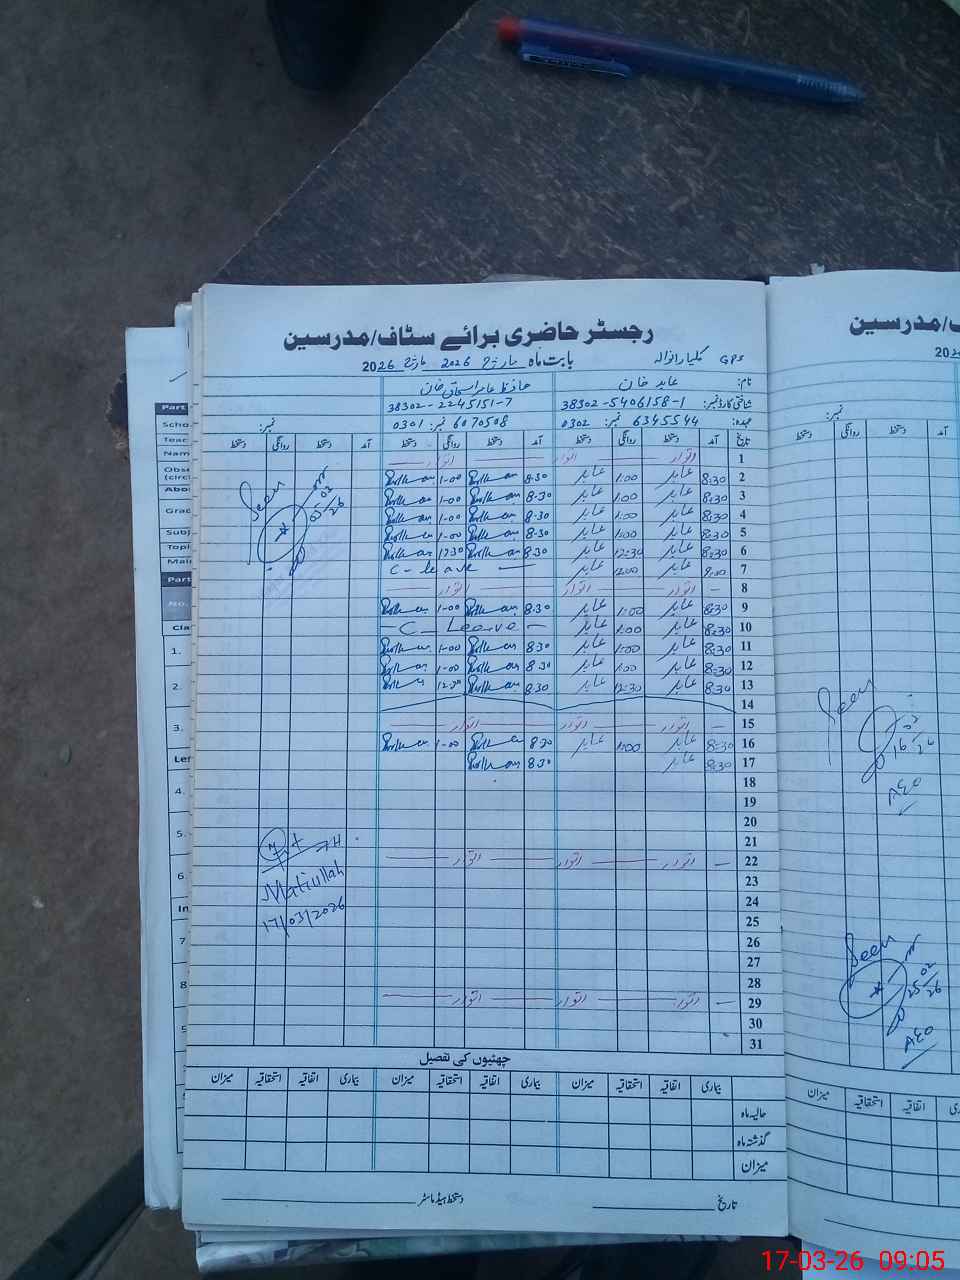 رجسٹر حاضری برائے سٹاف/مدرسین
GPS بابت ماہ مارچ 2026 مارچ 2026
نام: عابد خان
شناختی کارڈ نمبر: 38302-5406158-1 38302-2245151-7
عہدہ: 0302 نمبر: 6345544 0301 نمبر: 6070508 نمبر:
تاریخ آمد دستخط روانگی دستخط آمد دستخط روانگی دستخط آمد دستخط روانگی دستخط
1 اتوار اتوار اتوار
2 8:30 عابد 1:00 عابد 8.30 1-00
3 8:30 عابد 1:00 عابد 8.30 1-00
4 8:30 عابد 1:00 عابد 8.30 1-00
5 8:30 عابد 1:00 عابد 8.30 1-00
6 8:30 عابد 12:30 عابد 8.30 12.30
7 9:00 عابد 12:00 عابد C- leave
8 – اتوار اتوار اتوار
9 8:30 عابد 1:00 عابد 8.30 1-00
10 8:30 عابد 1:00 عابد – C- Leave –
11 8:30 عابد 1:00 عابد 8.30 1-00
12 8:30 عابد 1:00 عابد 8.30 1-00
13 8:30 عابد 12:30 عابد 8.30 12.30
14
15 – اتوار اتوار اتوار
16 8:30 عابد 1:00 عابد 8.30 1-00
17 8:30 عابد 8.30
18
19
20
21
22 – اتوار اتوار اتوار
23
24
25
26
27
28
29 – اتوار اتوار اتوار
30
31
Seen
05/02/26
Matiullah
17/03/2026
چھٹیوں کی تفصیل
بیماری اتفاقیہ استحقاقیہ میزان بیماری اتفاقیہ استحقاقیہ میزان بیماری اتفاقیہ استحقاقیہ میزان
حالیہ ماہ
گذشتہ ماہ
میزان
تاریخ دستخط ہیڈ ماسٹر
ف/مدرسین
202
نمبر:
دستخط روانگی دستخط
Seen
16/02/26
AEO
Seen
25/02/26
AEO
اتفاقیہ استحقاقیہ میزان
Part
Scho
Teac
Nam
Obse
(circ
Abo
Grad
Subj
Topi
Mai
Part
NO.
Cla
1.
2.
3.
Ler
4.
5.
6.
In
7
8
17-03-26 09:05